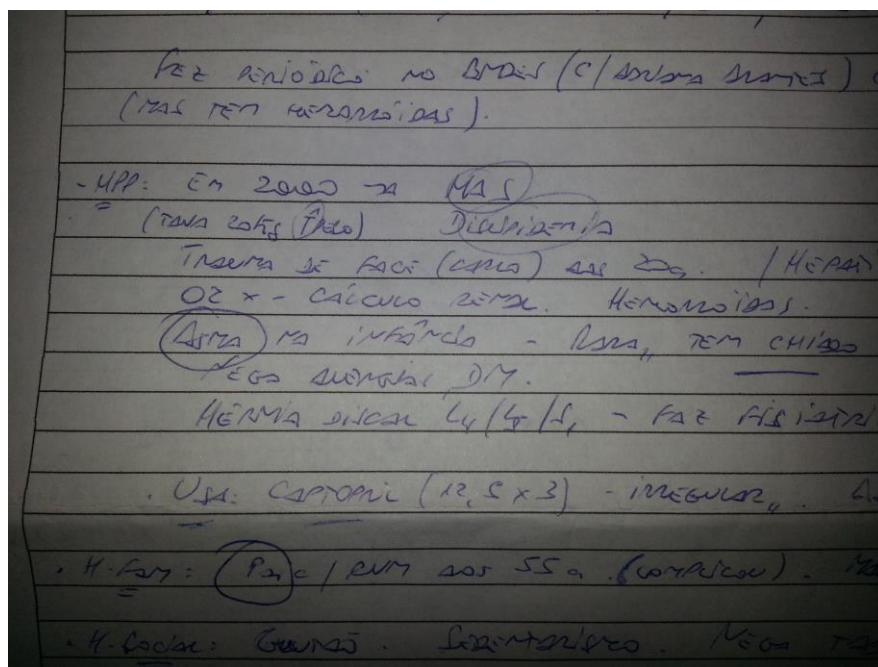 FEZ PERIÓDICO NO BNDES (C/ ADRIANA ARANTES)
(MAS TEM HEMORRÓIDAS).
- HPP: EM 2000 → HAS
(TAVA 20Kg ↑ PESO) DISLIPIDEMIA
TRAUMA DE FACE (CARRO) AOS 20a. / HEPAT
02 x - CÁLCULO RENAL. HEMORRÓIDAS.
ASMA NA INFÂNCIA - RARA,, TEM CHIADO
NEGA ALERGIAS, DM.
HÉRNIA DISCAL L4/L5/S1 - FAZ FISIATRI
. USA: CAPTOPRIL (12,5 x 3) - IRREGULAR,, .
. H. FAM: PAI C/ RVM AOS 55a. (COMPLICOU).
. H. SOCIAL: SEDENTARISMO. NEGA